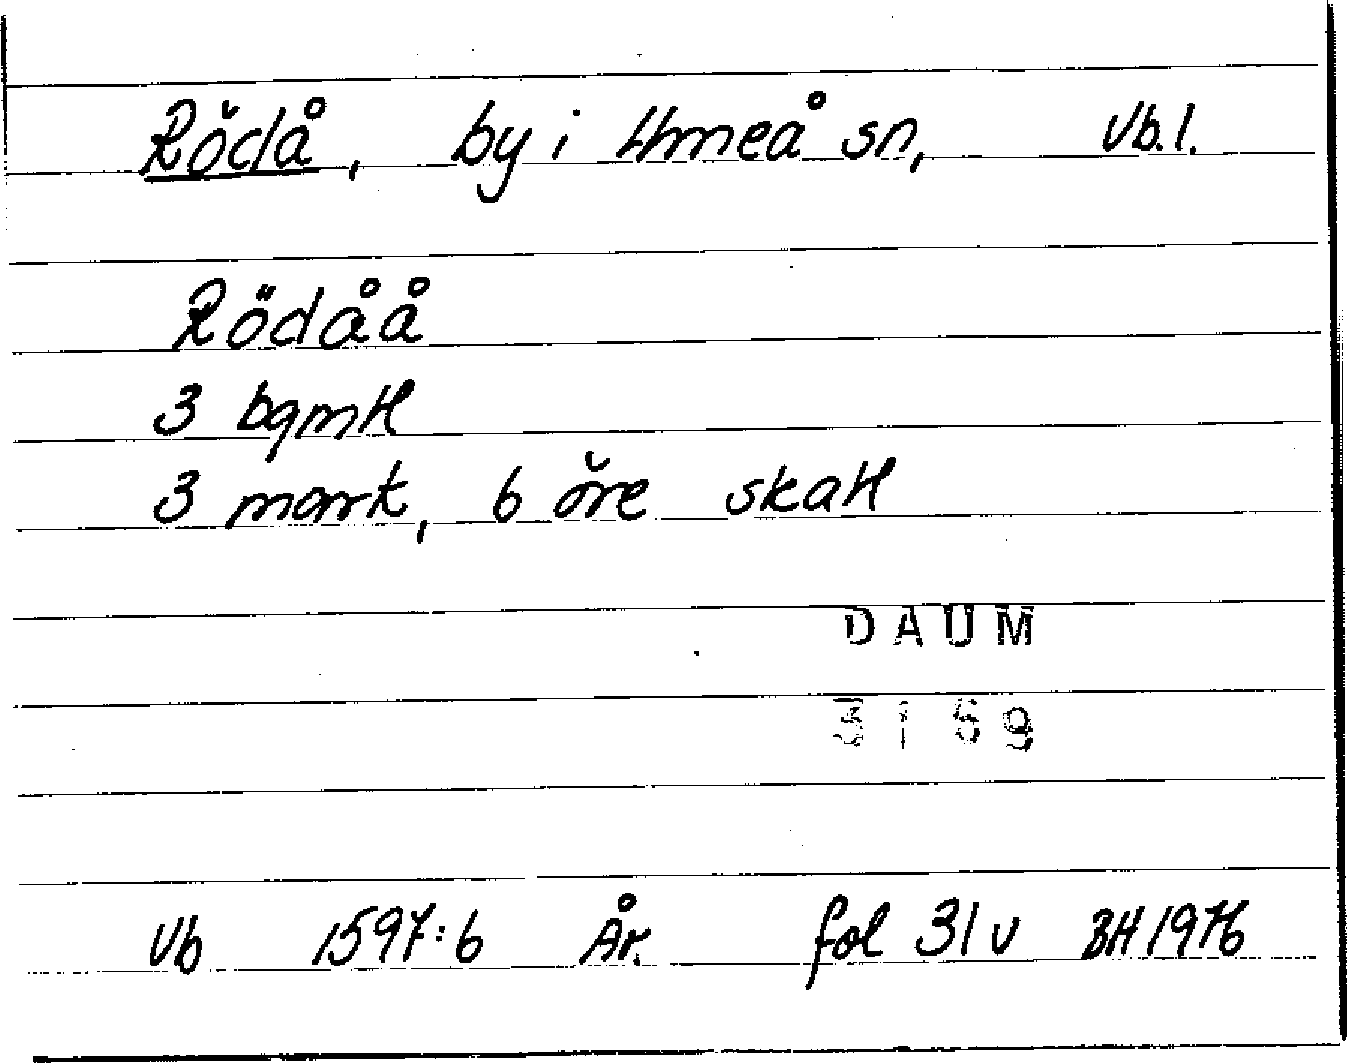 Rödå, by i Umeå sn, Vb.l.
Rödåå
3 bgmtl
3 mark, 6 öre skatt
DAUM
3169
Vb 1597:6 År. fol 31 v BH 1976